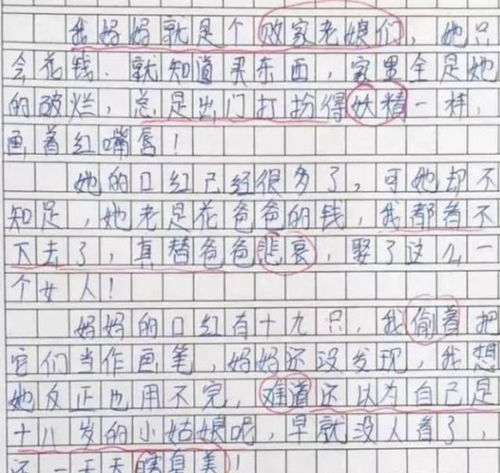 我妈妈就是个败家老娘们，她只
会花钱．就知道买东西，家里全是她
的破烂，总是出门打扮得妖精一样，
画着红嘴唇！
她的口红已经很多了，可她却不
知足，她老是花爸爸的钱，我都看不
下去了，真替爸爸悲哀，娶了这么一
个女人！
妈妈的口红有十九只，我偷着把
它们当作画笔，妈妈还没发现，我想
她反正也用不完，难道还以为自己是
十八岁的小姑娘呢，早就没人看了，
还一天天臭美！